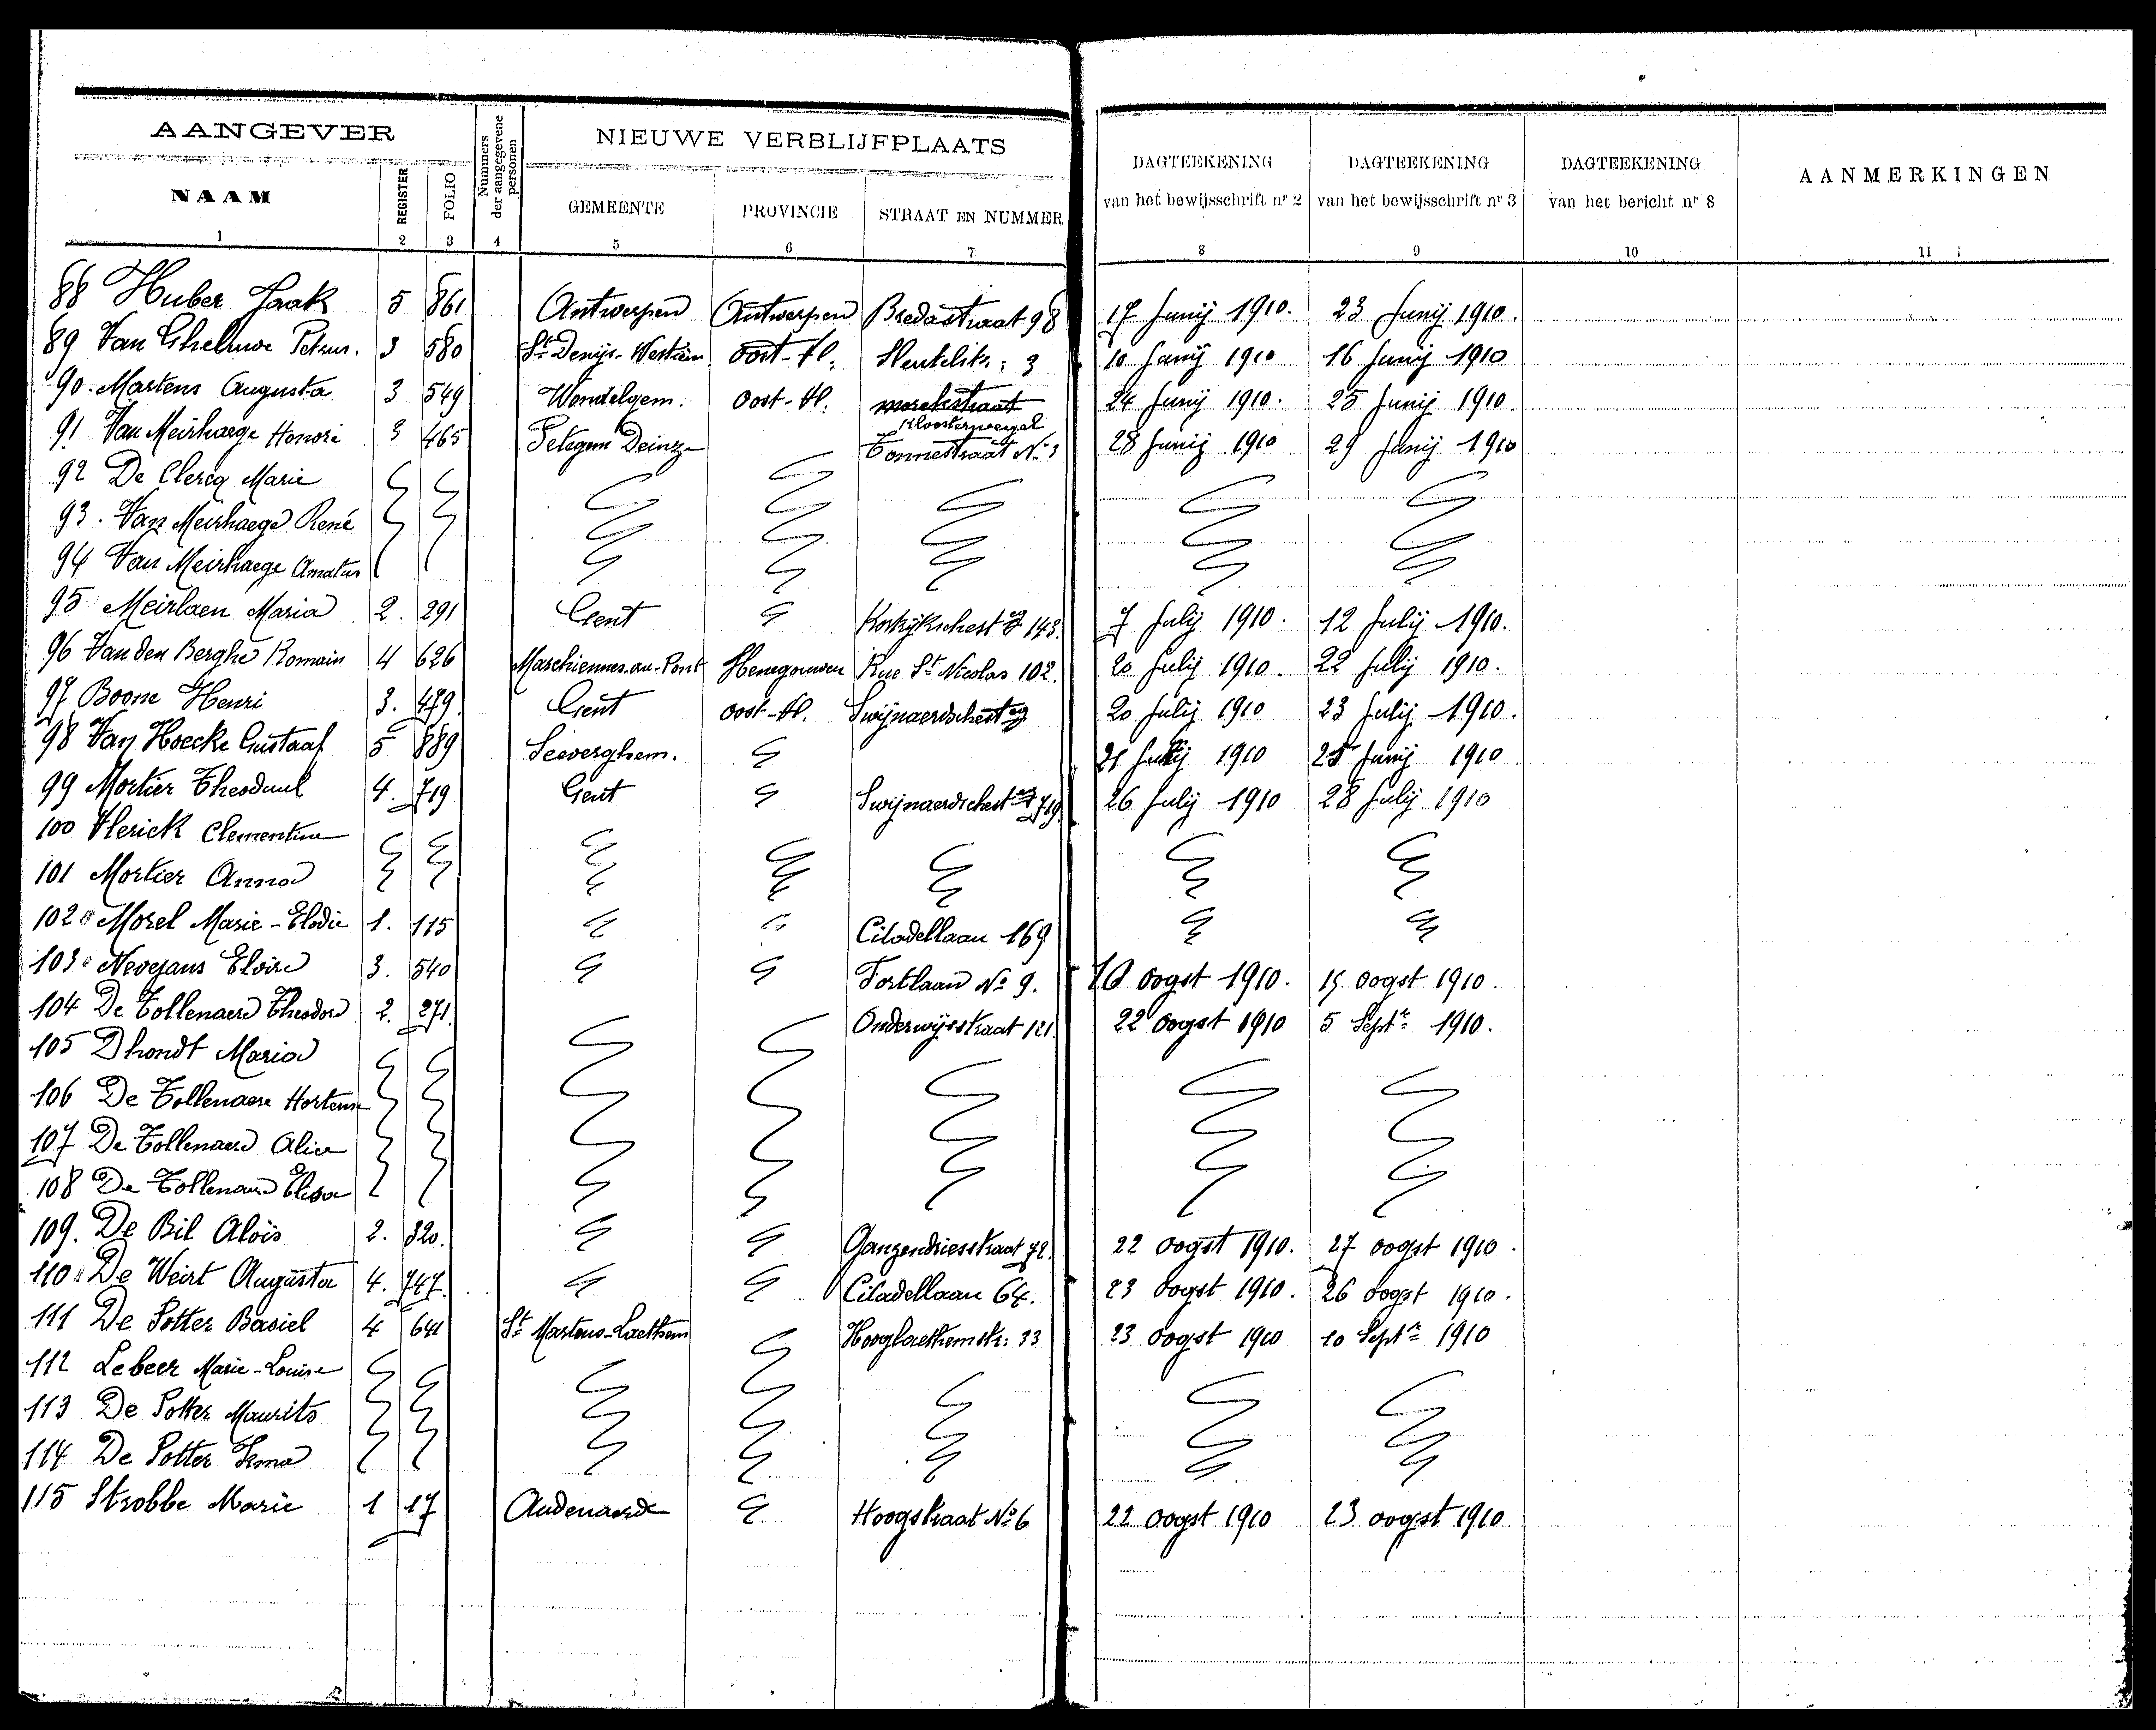 AANGEVER NIEUWE VERBLIJFPLAATS
NAAM REGISTER FOLIO Nummers der aangegevene personen GEMEENTE PROVINCIE STRAAT EN NUMMER DAGTEEKENING van het bewijsschrift nr 2 DAGTEEKENING van het bewijsschrift nr 3 DAGTEEKENING van het bericht nr 8 AANMERKINGEN
1 2 3 4 5 6 7 8 9 10 11
88 Huber Jaak 5 861 Antwerpen Antwerpen Bredastraat 98 17 Junij 1910. 23 Junij 1910.
89 Van Gheluwe Petrus. 3 580 St Denijs-Westrem Oost-Vl. Sleutelstr: 3 10 Junij 1910 16 Junij 1910
90. Martens Augusta 3 549 Wondelgem. Oost-Vl. Kloosterwegel 24 Junij 1910. 25 Junij 1910.
91 Van Meirhaege Honoré 3 465 Petegem Deinze Tonnestraat No 3 28 Junij 1910 29 Junij 1910
92 De Clercq Marie
93. Van Meirhaege René
94 Van Meirhaege Amatus
95 Meirlaen Maria 2. 291 Gent Kortrijkschestg 143. 7 Julij 1910. 12 Julij 1910.
96 Van den Berghe Romain 4 626 Marchiennes-au-Pont Henegouwen Rue St Nicolas 102. 20 Julij 1910. 22 Julij 1910.
97 Boone Henri 3. 479. Gent Oost-Vl. Swijnaerdschestg 20 Julij 1910 23 Julij 1910.
98 Van Hoecke Gustaaf 5 889 Seeverghem. 21 1910 25 Junij 1910
99 Mortier Theoduul 4. 719 Gent Swijnaerdschestg 719 26 Julij 1910 28 Julij 1910
100 Vlerick Clementine
101 Mortier Anna
102 Morel Marie-Elodie 1. 115 Citadellaan 169
103 Nevejans Eloïse 3. 540 Fortlaan No 9. 10 oogst 1910. 15 oogst 1910.
104 De Tollenaere Theodor 2. 271. Onderwijsstraat 121. 22 oogst 1910 5 Septr 1910.
105 Dhondt Maria
106 De Tollenaere Hortense
107 De Tollenaere Alice
108 De Tollenaere Elisa
109. De Bil Aloïs 2. 320. Ganzendriesstraat 72. 22 oogst 1910. 27 oogst 1910.
110 De Weirt Augusta 4. 747. Citadellaan 64. 23 oogst 1910. 26 oogst 1910.
111 De Potter Basiel 4 641 St Martens-Laethem Hooglaethemstr: 33 23 oogst 1910 10 Septr 1910
112 Lebeer Marie-Louise
113 De Potter Maurits
114 De Potter Irma
115 Strobbe Marie 1 17 Audenaarde Hoogstraat No 6 22 oogst 1910 23 oogst 1910.